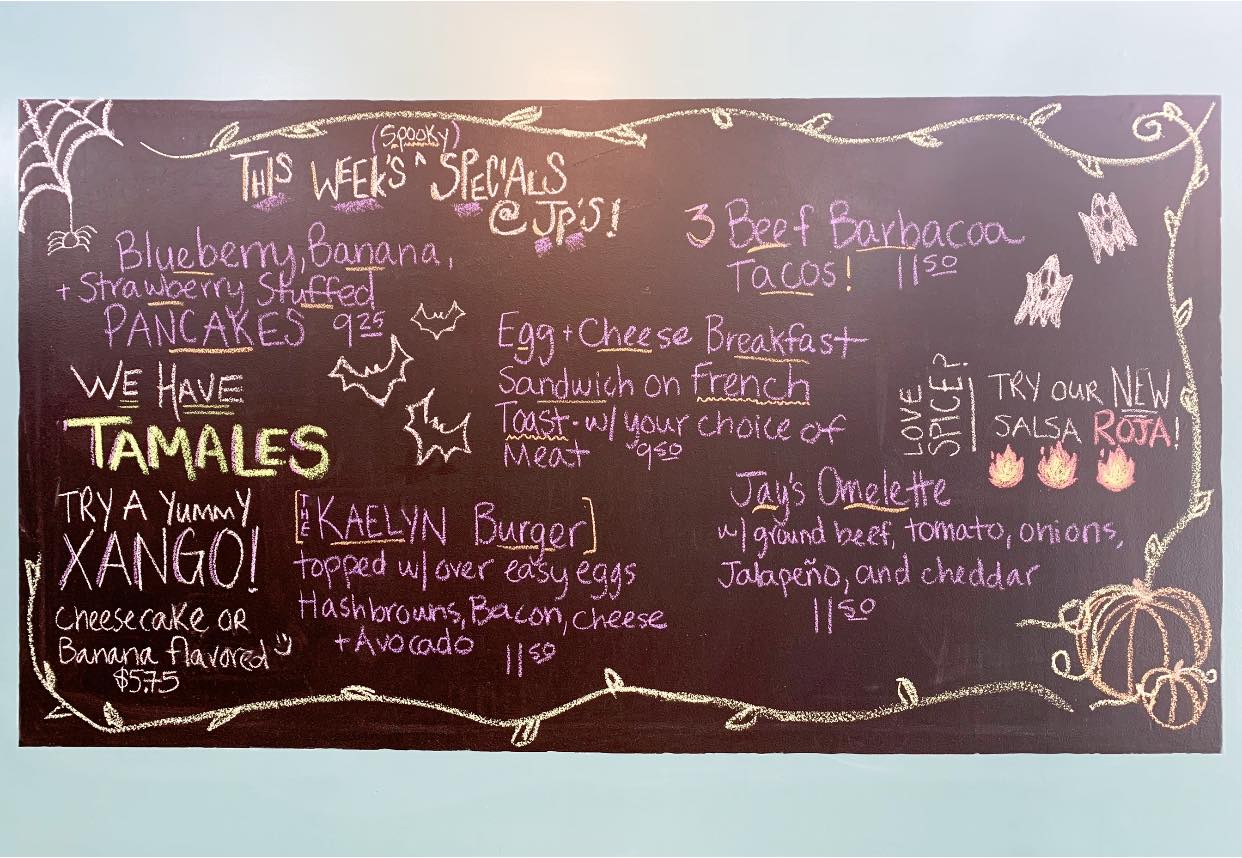 (Spooky)
THIS WEEK'S ^ SPECIALS
@ JP'S!
Blueberry, Banana,
+ Strawberry Stuffed
PANCAKES 9 25
WE HAVE
TAMALES
TRY A YUMMY
XANGO!
Cheesecake OR
Banana flavored
$5.75
3 Beef Barbacoa
Tacos! 11 50
Egg + Cheese Breakfast
Sandwich on French
Toast - w/ your choice of
Meat 9 50
[THE KAELYN Burger]
topped w/ over easy eggs
Hashbrowns, Bacon, cheese
+ Avocado 11 50
LOVE
SPICE?
TRY OUR NEW
SALSA ROJA!
Jay's Omelette
w/ ground beef, tomato, onions,
Jalapeño, and cheddar
11 50